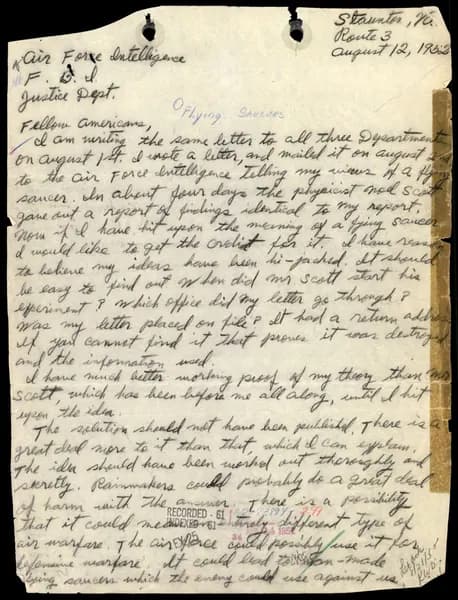 Staunton, Va.
Route 3
August 12, 1952
Air Force Intelligence
F. B. I
Justice Dept.
Flying Saucers
Fellow Americans,
I am writing the same letter to all three Department
on August 1st. I wrote a letter, and mailed it on august 2nd
to the Air Force Intelligence telling my views of a flying
saucer. In about four days the physicist Noel Scott
gave out a report of findings identical to my report.
Now if I have hit upon the meaning of a flying saucer
I would like to get the credit for it. I have reason
to believe my ideas have been hi-jacked. It should
be easy to find out when did Mr Scott start his
experiment? Which office did my letter go through?
Was my letter placed on file? It had a return address
If you cannot find it that proves it was destroyed
and the information used.
I have much better working proof of my theory than Mr
Scott, which has been before me all along, until I hit
upon the idea.
The solution should not have been published. There is a
great deal more to it than that, which I can explain.
The idea should have been worked out thoroughly and
secretly. Rainmakers could probably do a great deal
of harm with the answer. There is a possibility
RECORDED - 61
that it could mean an entirely different type of
INDEXED - 61
air warfare. The air force could possibly use it for
defensive warfare. It could lead to man-made
flying saucers which the enemy could use against us.